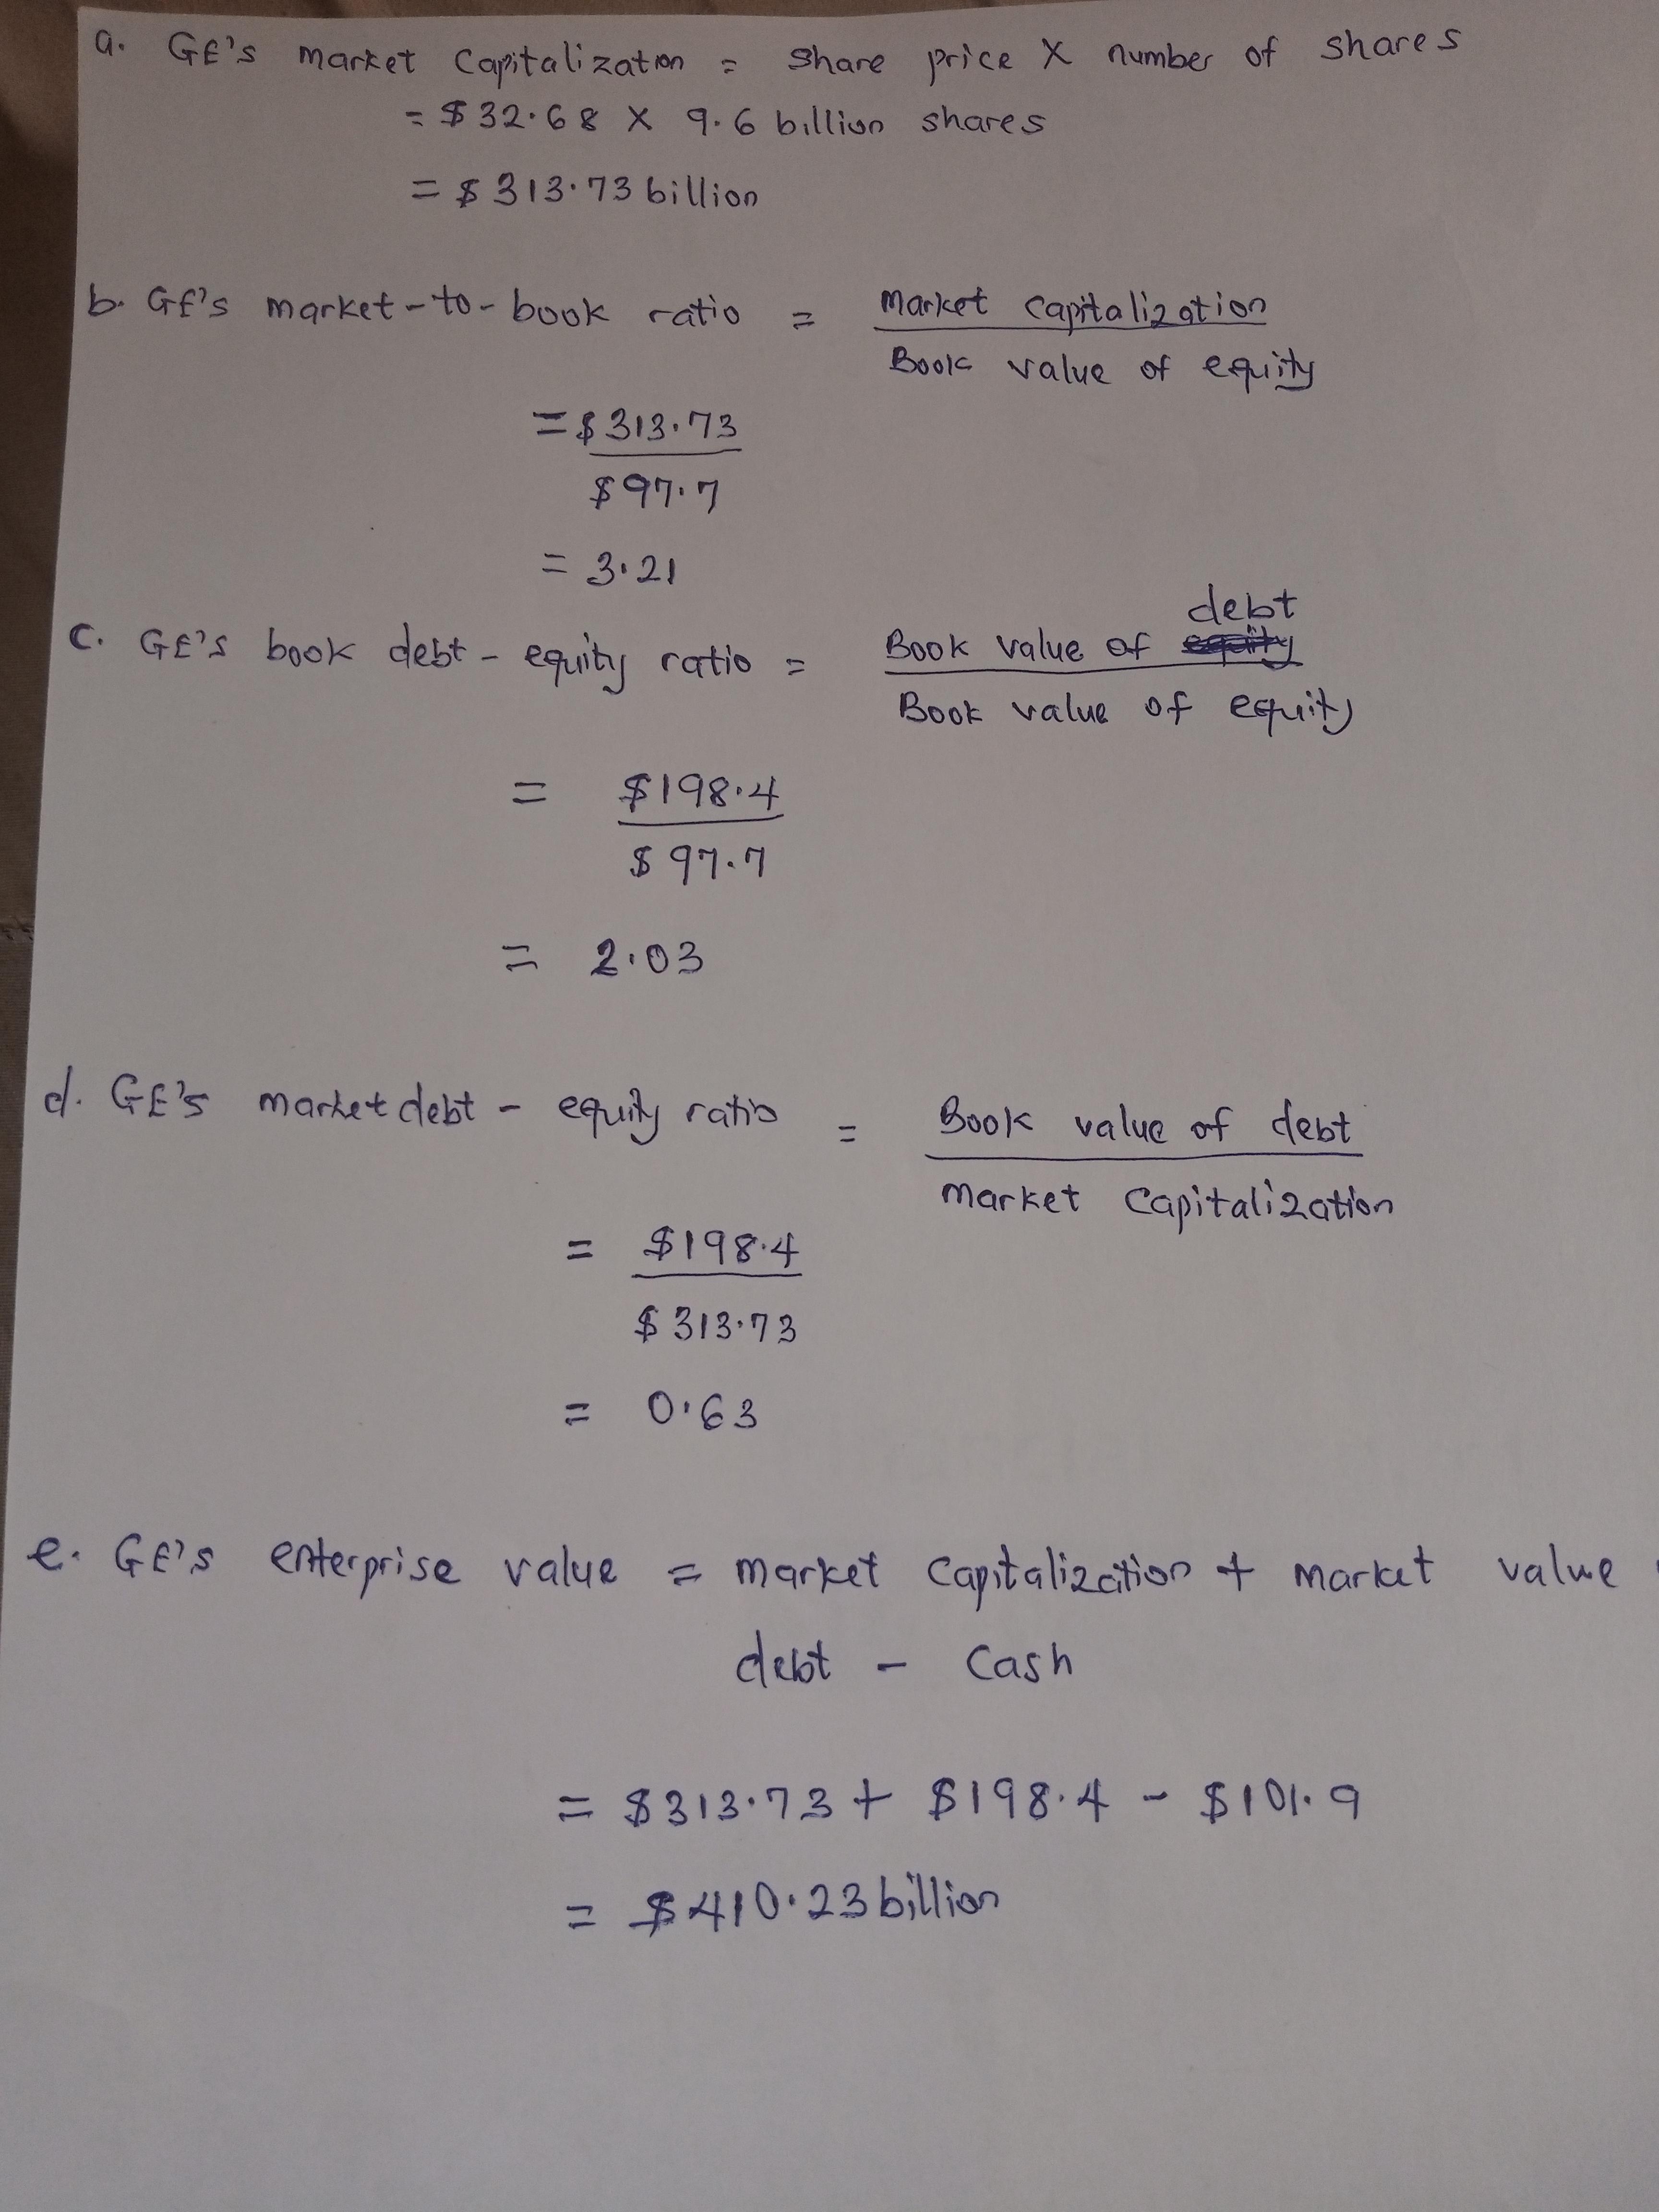 a. GE's market Capitalization = Share price X number of shares
= $32.68 X 9.6 billion shares
= $313.73 billion
b. GE's market-to-book ratio = Market Capitalization
Book value of equity
= $313.73
$97.7
= 3.21
debt
c. GE's book debt - equity ratio = Book value of
Book value of equity
= $198.4
$97.7
= 2.03
d. GE's market debt - equity ratio = Book value of debt
Market Capitalization
= $198.4
$313.73
= 0.63
e. GE's enterprise value = market Capitalization + market value
debt - Cash
= $313.73 + $198.4 - $101.9
= $410.23 billion